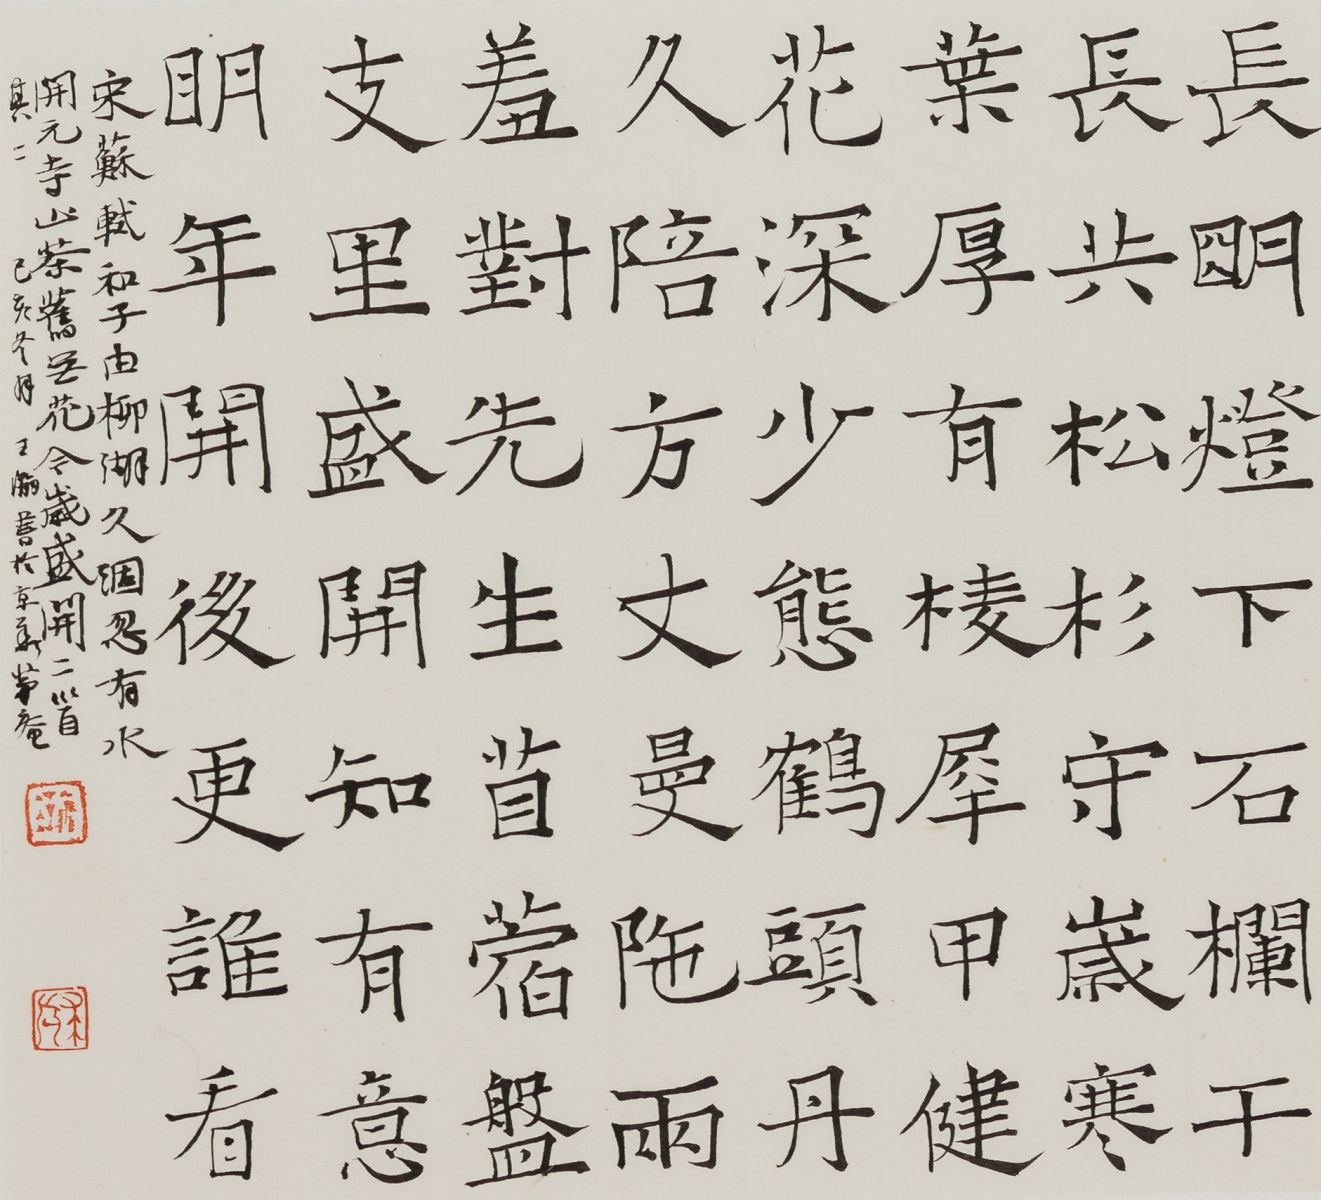 長明燈下石欄干
長共松杉守歲寒
葉厚有棱犀甲健
花深少態鶴頭丹
久陪方丈曼陁雨
羞對先生苜蓿盤
支里盛開知有意
明年開後更誰看
宋蘇軾和子由柳湖久涸忽有水
開元寺山茶舊無花今歲盛開二首
其二 己亥冬月 王瀚書於京華茅庵